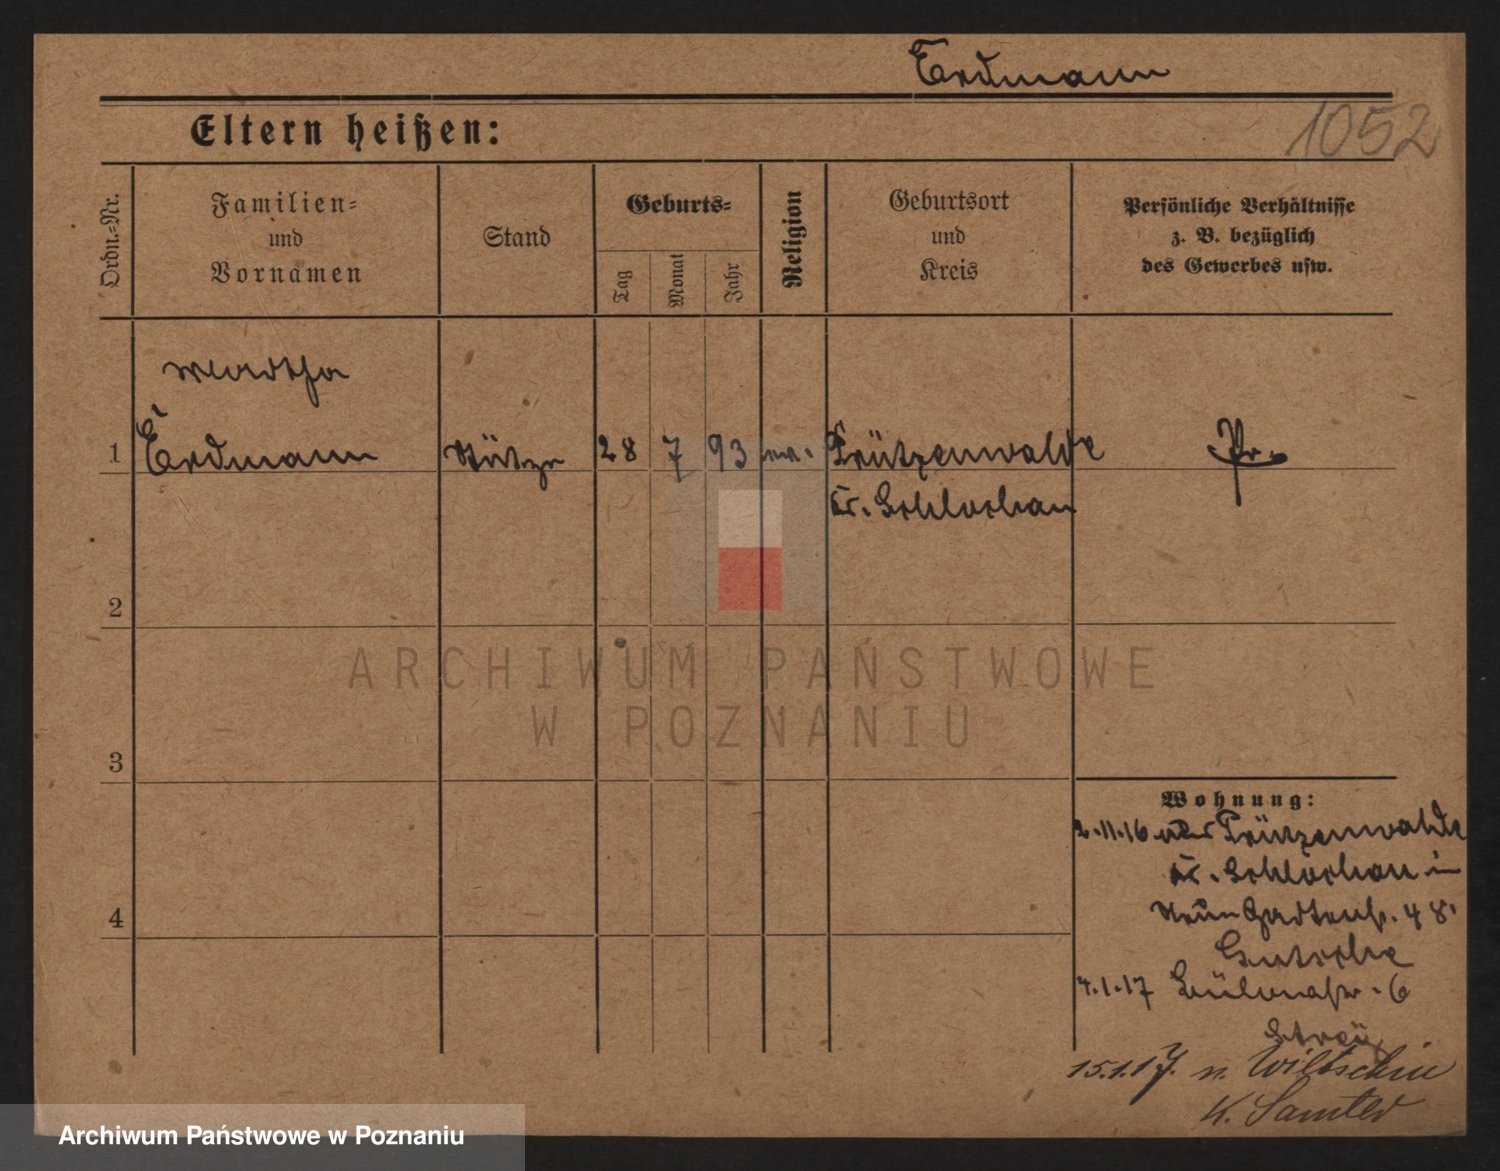 Erdmann
1052
Eltern heißen:
Ordn.-Nr.
Familien-
und
Vornamen
Stand
Geburts-
Tag
Monat
Jahr
Religion
Geburtsort
und
Kreis
Persönliche Verhältnisse
z. B. bezüglich
des Gewerbes usw.
Martha
1 Erdmann Stütze 28 7 93 ev. Prützenwalde Pr.
Kr. Schlochau
2
3
4
Wohnung:
2.11.16 aus Prützenwalde
Kr. Schlochau in
Neue Gartenstr. 48
4.1.17 6
15.1.17. n. Wiltschin
K. Samter
ARCHIWUM PAŃSTWOWE
W POZNANIU
Archiwum Państwowe w Poznaniu